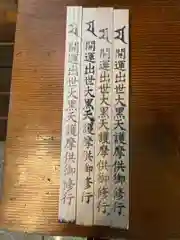 開運出世大黒天護摩供御修行
開運出世大黒天護摩供御修行
開運出世大黒天護摩供御修行
開運出世大黒天護摩供御修行